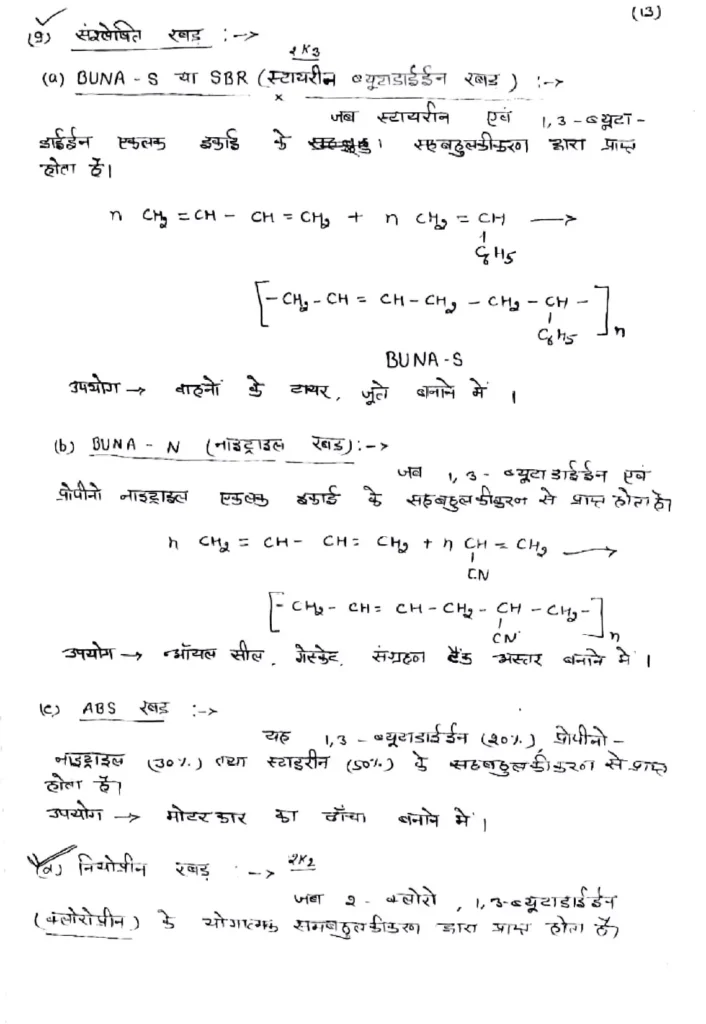 (13)
(9) संश्लेषित रबड़ :->
2K3
(a) BUNA - S या SBR (स्टायरीन ब्यूटाडाईईन रबड़) :->
जब स्टायरीन एवं 1,3 - ब्यूटा -
डाईईन एकलक इकाई के । सहबहुलकीकरण द्वारा प्राप्त
होता है।
n CH2 = CH - CH = CH2 + n CH2 = CH ⟶
C6H5
[- CH2 - CH = CH - CH2 - CH2 - CH -]n
C6H5
BUNA - S
उपयोग → वाहनों के टायर, जूते बनाने में ।
(b) BUNA - N (नाइट्राइल रबड़) :->
जब 1,3 - ब्यूटाडाईईन एवं
प्रोपीनो नाइट्राइल एकलक इकाई के सहबहुलकीकरन से प्राप्त होता है।
n CH2 = CH - CH = CH2 + n CH = CH2 ⟶
CN
[- CH2 - CH = CH - CH2 - CH - CH2 -]n
CN
उपयोग → ऑयल सील, गेस्केट, संग्रहन टैंक अस्तर बनाने में ।
(c) ABS रबड़ :->
यह 1,3 - ब्यूटाडाईईन (20%), प्रोपीनो -
नाइट्राइल (30%) तथा स्टाइरीन (50%) के सहबहुलकीकरन से प्राप्त
होता है।
उपयोग → मोटर कार का ढाँचा बनाने में ।
(d) नियोप्रीन रबड़ :-> 2K2
जब 2 - क्लोरो, 1,3-ब्यूटाडाईईन
(क्लोरोप्रीन) के योगात्मक समबहुलकीकरण द्वारा प्राप्त होता है।